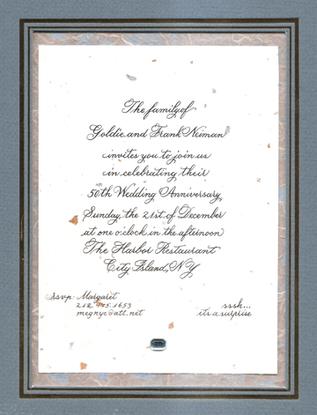 The family of
Goldie and Frank Neiman
invites you to join us
in celebrating their
50th Wedding Anniversary
Sunday, the 21st. of December
at one o'clock in the afternoon
The Harbor Restaurant
City Island, NY
rsvp: Margaret
sssh...
it's a surprise